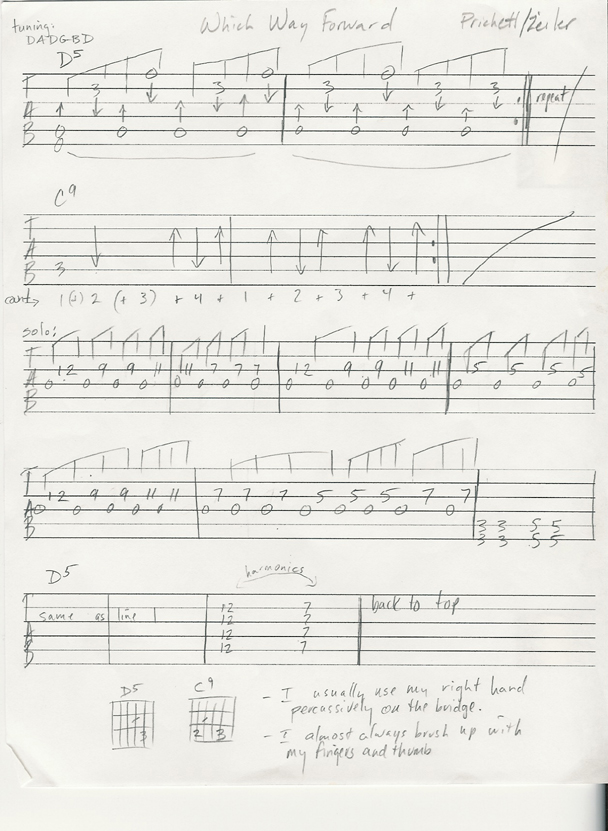 tuning: Which Way Forward Prichett/Zeiler
DADGBD
D5
T 0 0 0
3 3 3 3 3
A repeat
B 0 0 0 0 0 0 0
0
C9
T
A
B 3
count> 1 (+) 2 (+ 3) + 4 + 1 + 2 + 3 + 4 +
solo:
T
12 9 9 11 11 7 7 7 12 9 9 11 11 5 5 5 5
A 0 0 0 0 0 0 0 0 0 0 0 0 0 0 0 0
B
T
12 9 9 11 11 7 7 7 5 5 5 7 7
A 0 0 0 0 0 0 0 0 0 0 0 0
B 3 3 5 5
3 3 5 5
D5 harmonics
T back to top
same as line 1 12 7
A 12 7
B 12 7
12 7
D5 C9
- I usually use my right hand
percussively on the bridge.
- I almost always brush up with
my fingers and thumb